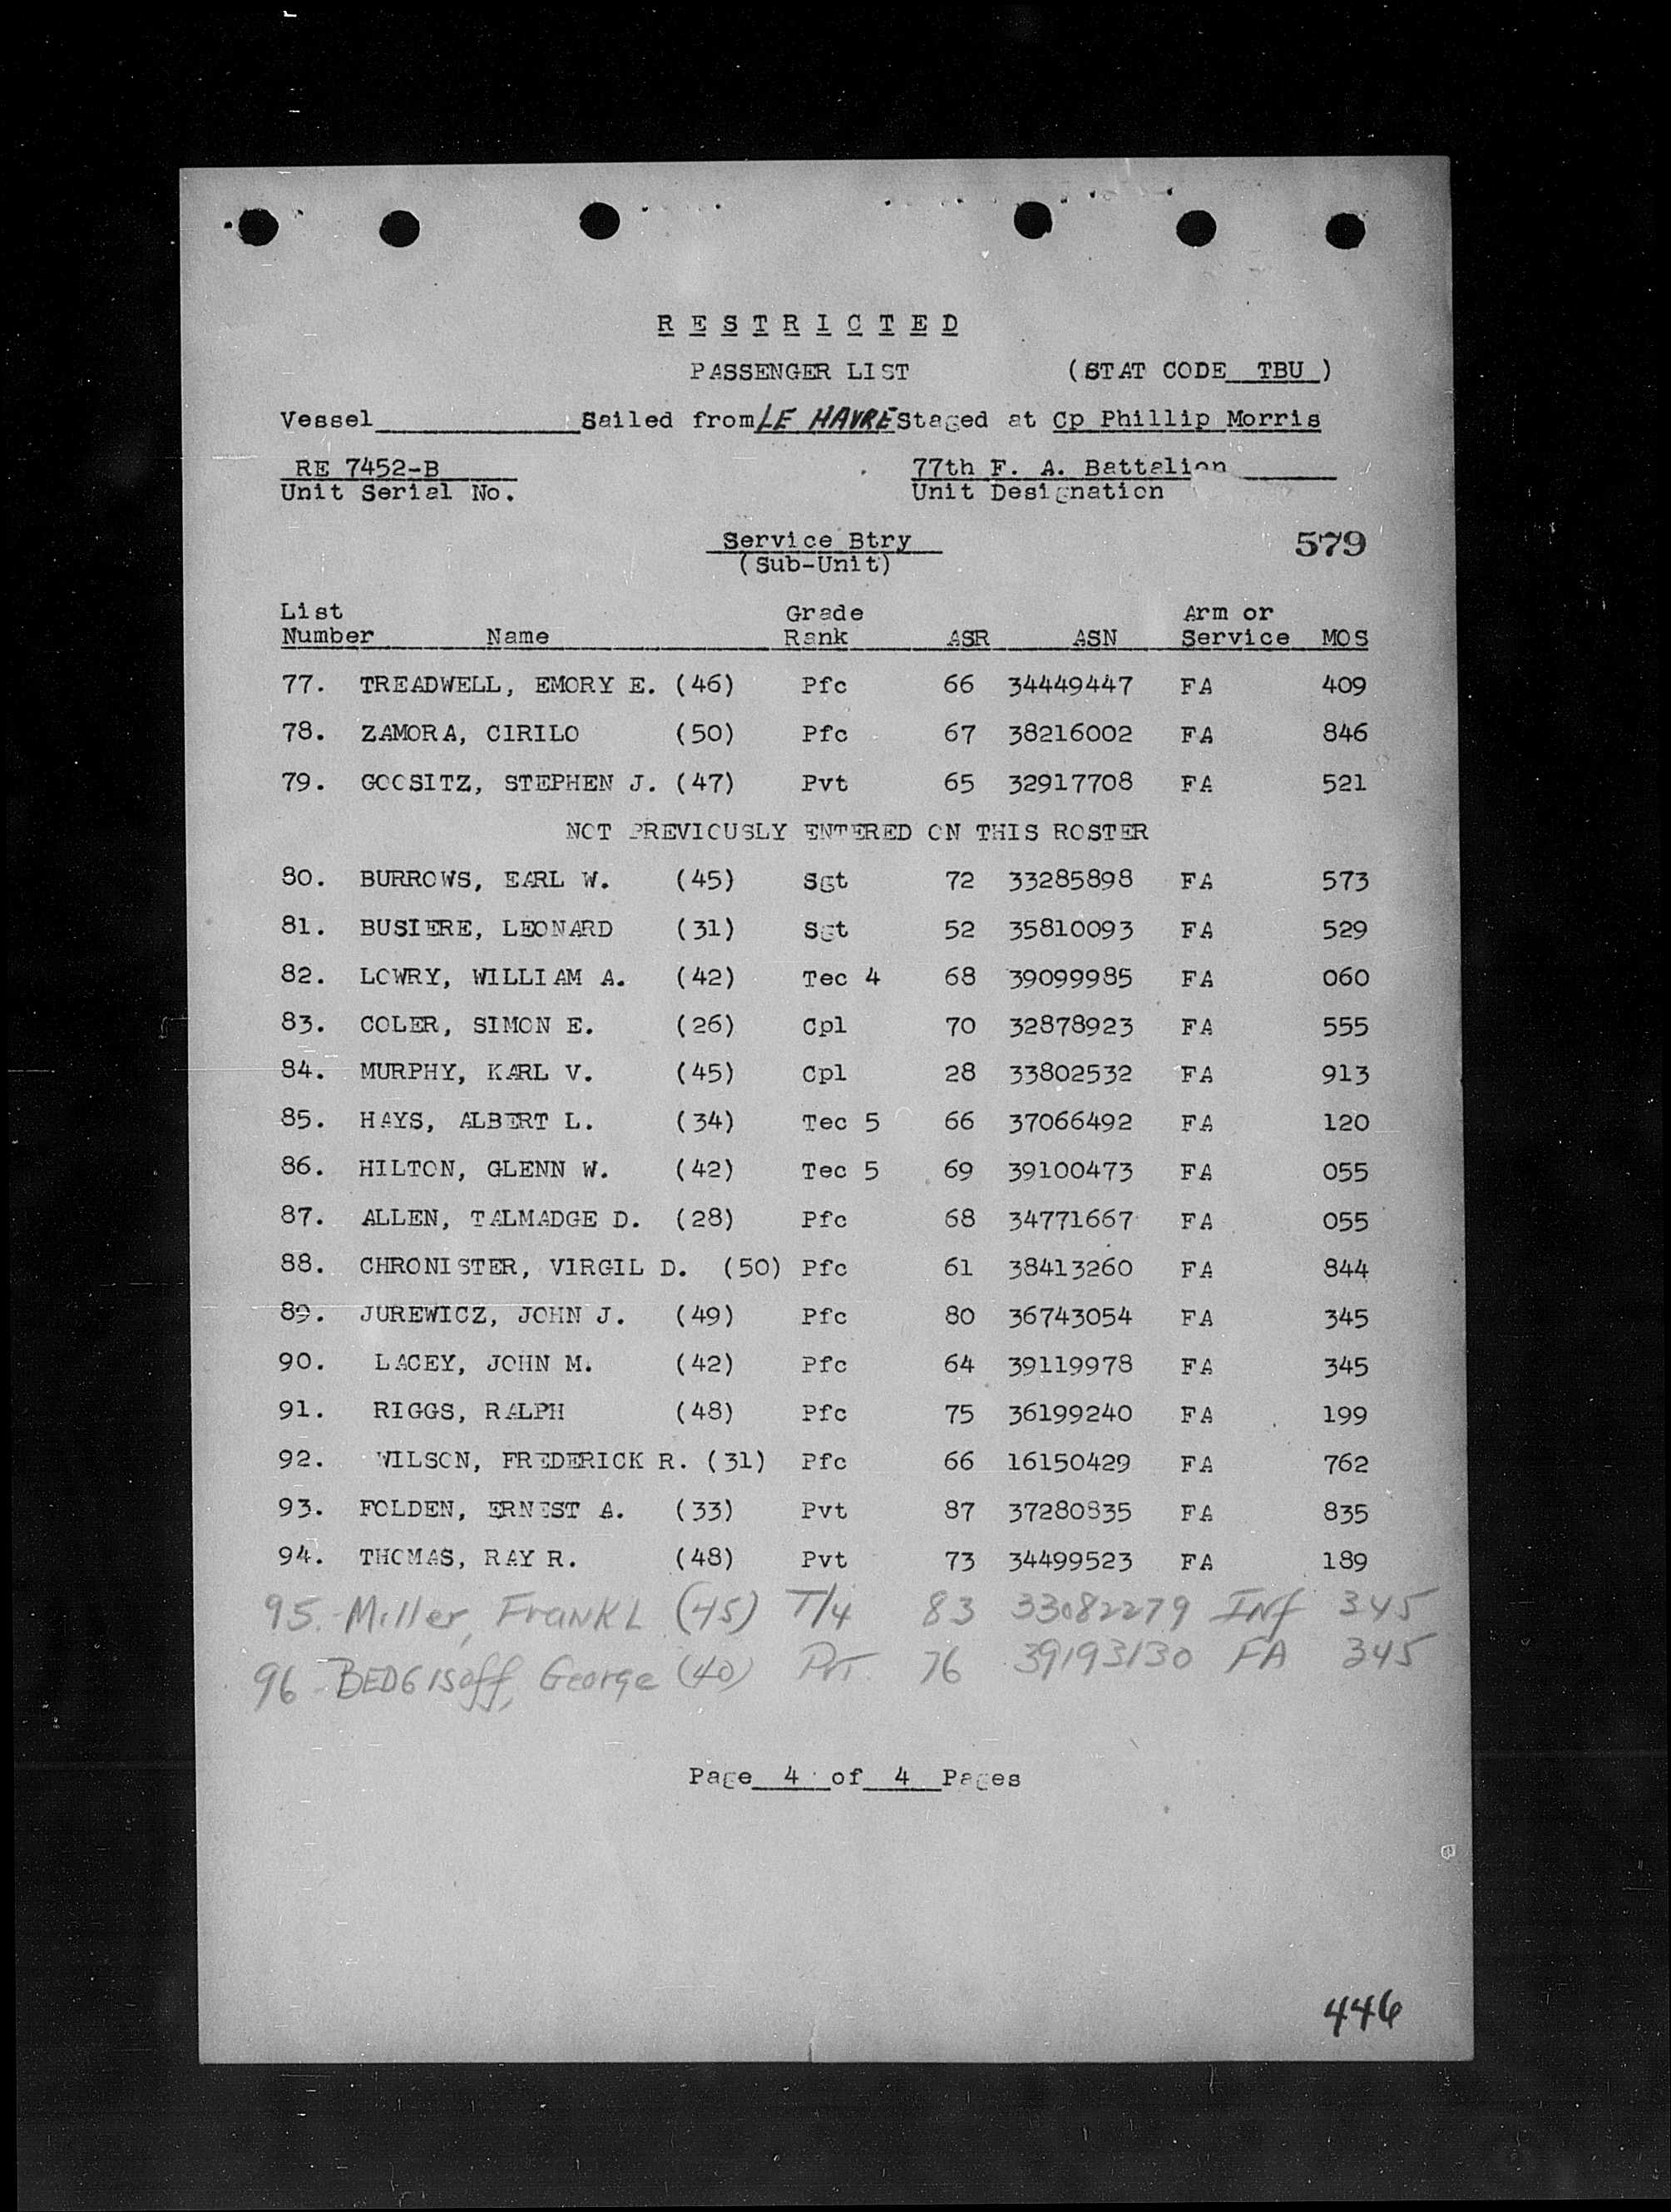 RESTRICTED
PASSENGER LIST (STAT CODE TBU )
Vessel____________Sailed from LE HAVRE Staged at Cp Phillip Morris
RE 7452-B 77th F. A. Battalion
Unit Serial No. Unit Designation
Service Btry 579
(Sub-Unit)
List Grade Arm or
Number Name Rank ASR ASN Service MOS
77. TREADWELL, EMORY E. (46) Pfc 66 34449447 FA 409
78. ZAMORA, CIRILO (50) Pfc 67 38216002 FA 846
79. GOOSITZ, STEPHEN J. (47) Pvt 65 32917708 FA 521
NOT PREVIOUSLY ENTERED ON THIS ROSTER
80. BURROWS, EARL W. (45) Sgt 72 33285898 FA 573
81. BUSIERE, LEONARD (31) Sgt 52 35810093 FA 529
82. LOWRY, WILLIAM A. (42) Tec 4 68 39099985 FA 060
83. COLER, SIMON E. (26) Cpl 70 32878923 FA 555
84. MURPHY, KARL V. (45) Cpl 28 33802532 FA 913
85. HAYS, ALBERT L. (34) Tec 5 66 37066492 FA 120
86. HILTON, GLENN W. (42) Tec 5 69 39100473 FA 055
87. ALLEN, TALMADGE D. (28) Pfc 68 34771667 FA 055
88. CHRONISTER, VIRGIL D. (50) Pfc 61 38413260 FA 844
89. JUREWICZ, JOHN J. (49) Pfc 80 36743054 FA 345
90. LACEY, JOHN M. (42) Pfc 64 39119978 FA 345
91. RIGGS, RALPH (48) Pfc 75 36199240 FA 199
92. WILSON, FREDERICK R. (31) Pfc 66 16150429 FA 762
93. FOLDEN, ERNEST A. (33) Pvt 87 37280835 FA 835
94. THOMAS, RAY R. (48) Pvt 73 34499523 FA 189
95. Miller, Frank L (45) T/4 83 33082279 Inf 345
96 - BEDGISoff, George (40) Pvt. 76 39193130 FA 345
Page 4 of 4 Pages
446